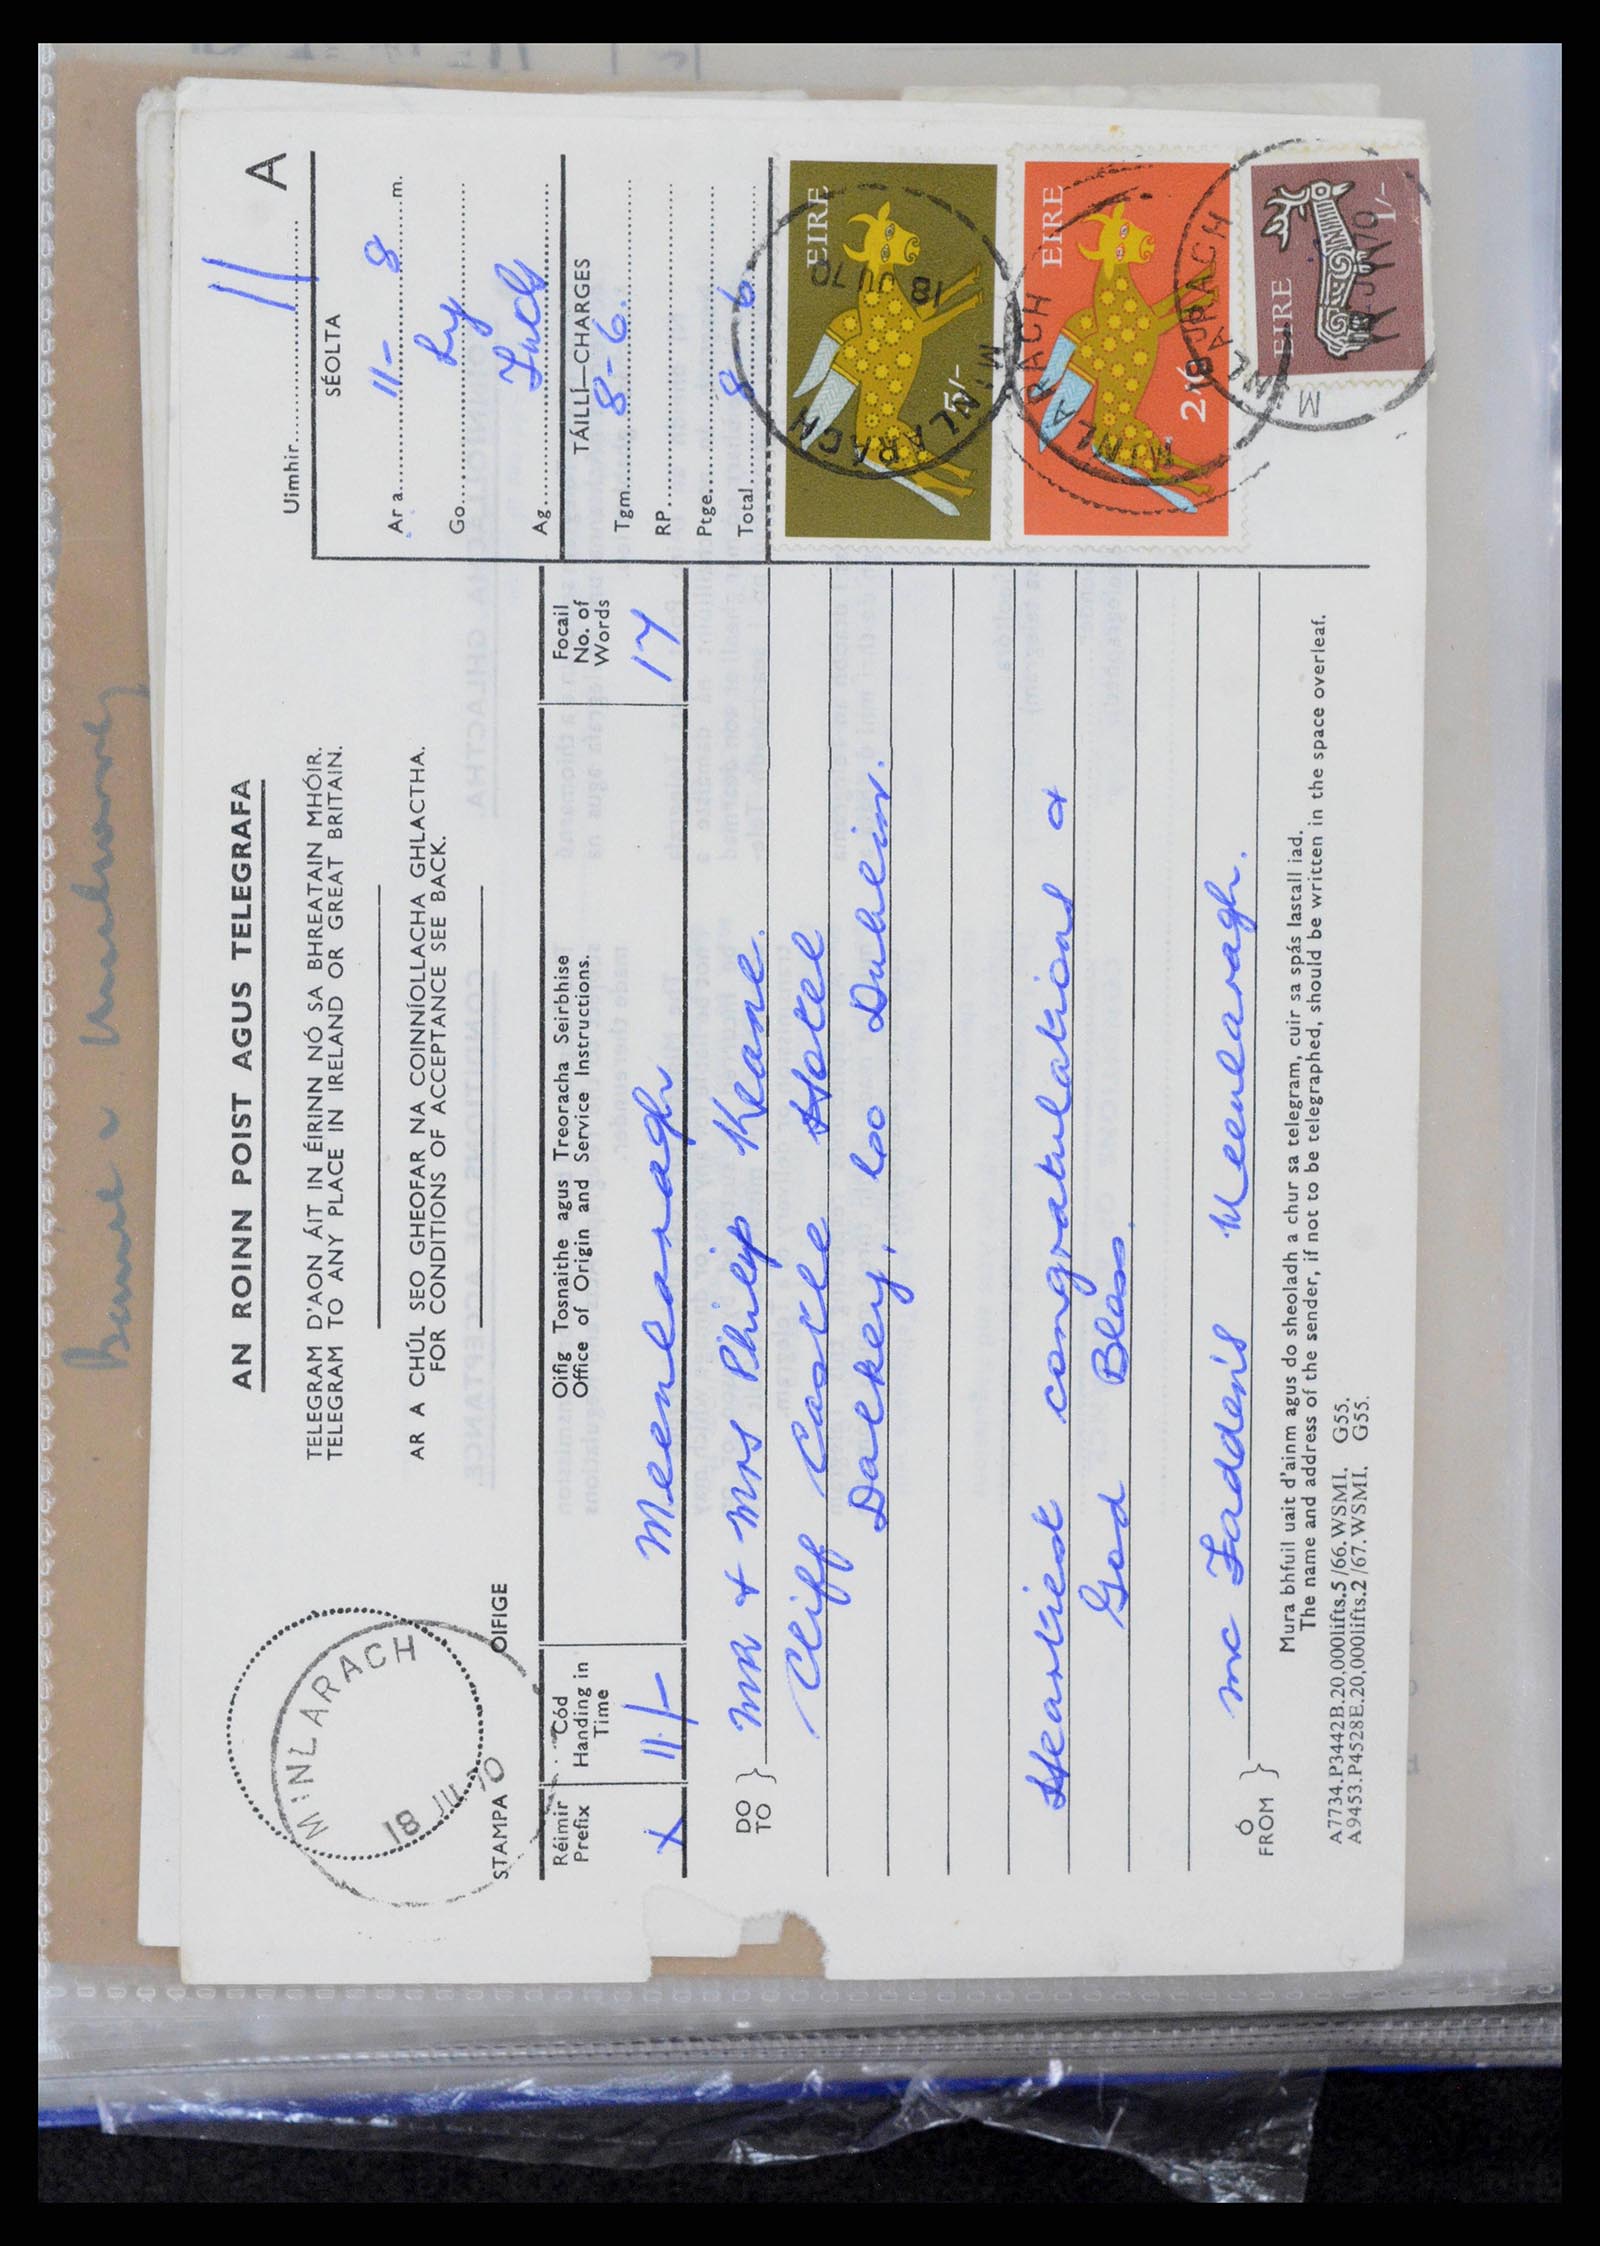 AN ROINN POIST AGUS TELEGRAFA
TELEGRAM D'AON ÁIT IN ÉIRINN NÓ SA BHREATAIN MHÓIR.
TELEGRAM TO ANY PLACE IN IRELAND OR GREAT BRITAIN.
AR A CHÚL SEO GHEOFAR NA COINNÍOLLACHA GHLACTHA.
FOR CONDITIONS OF ACCEPTANCE SEE BACK.
MINLARACH
18 JU 70
STAMPA OIFIGE
Uimhir 11 A
SÉOLTA
Ar a 11-8 m.
Go
Ag
TÁILLÍ—CHARGES
Tgm. 8-6.
RP
Ptge.
Total 8-6
Réimír
Prefix
X
Cód
Handing in
Time
11/-
Oifig Tosnaithe agus Treoracha Seirbhise
Office of Origin and Service Instructions.
Meenlaragh
Focail
No. of
Words
17
DO
TO
Mr & Mrs Philip Keane.
Cliff Castle Hotel
Dalkey, Co Dublin.
Heartiest congratulations &
God Bless.
Ó
FROM
Mc Fadden's Meenlaragh.
Mura bhfuil uait d'ainm agus do sheoladh a chur sa telegram, cuir sa spás lastall iad.
The name and address of the sender, if not to be telegraphed, should be written in the space overleaf.
A7734.P3442B.20,000lifts.5/66.WSMI. G55.
A9453.P4528E.20,000lifts.2/67.WSMI. G55.
EIRE
5/-
MINLARACH
18 JU 70
EIRE
2/6
MINLARACH
EIRE
1/-
MINLARACH
18 JU 70